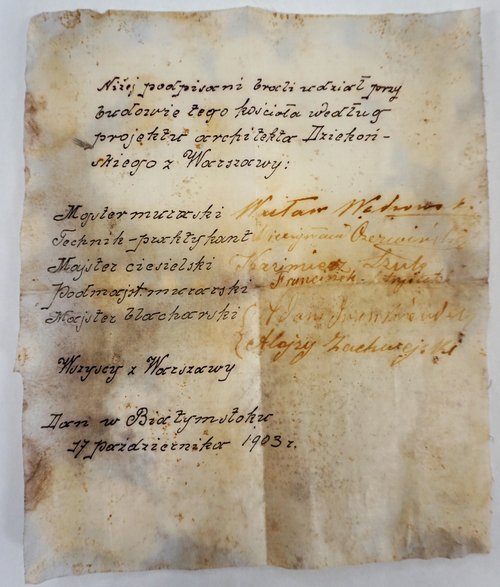 Niżej podpisani brali udział przy
budowie tego kościoła według
projektu architekta Dziekoń-
skiego z Warszawy:
Majster murarski Wacław
Technik-praktykant
Majster ciesielski Kazimierz
Podmajst. murarski Franciszek
Majster blacharski Adam
Alojzy
Wszyscy z Warszawy
Dan w Białymstoku
17 października 1903 r.